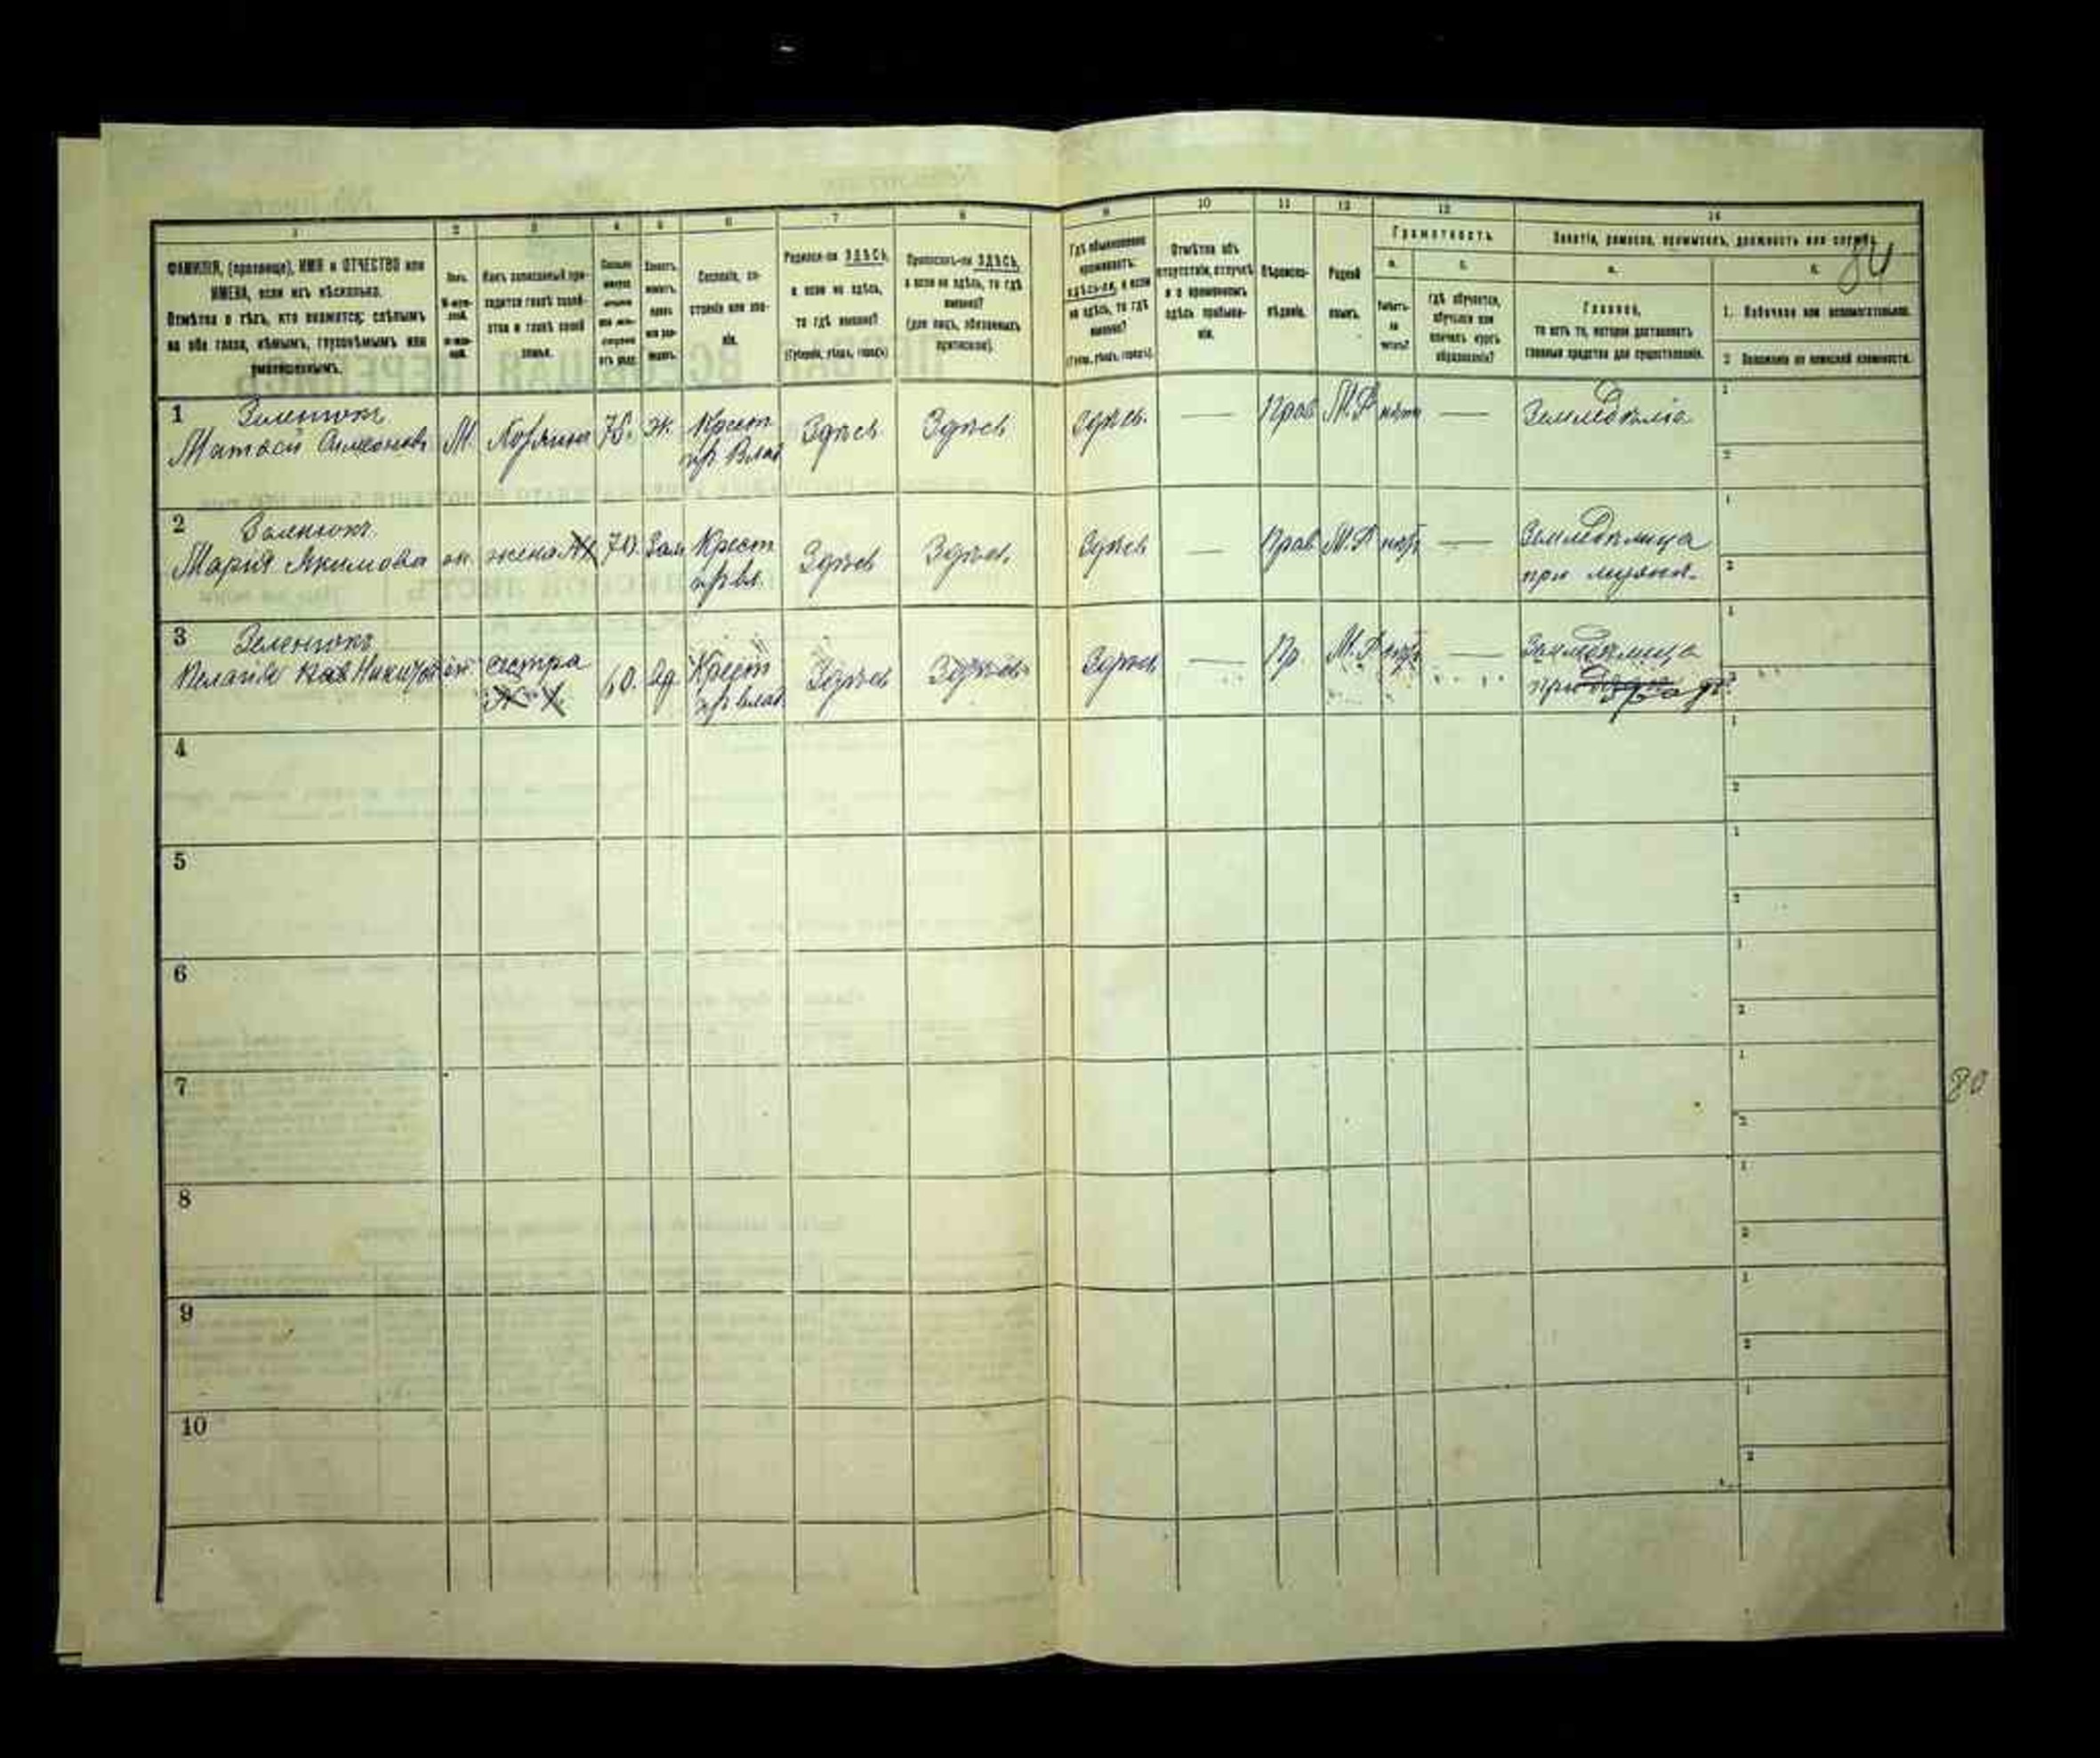 1 2 3 4 5 6 7 8 9 10 11 12 13 14
ФАМИЛІЯ, (прозвище), ИМЯ и ОТЧЕСТВО или
ИМЕНА, если ихъ нѣсколько.
Отмѣтка о тѣхъ, кто окажется: слѣпымъ
на оба глаза, нѣмымъ, глухонѣмымъ или
умалишеннымъ.
Полъ.
Какъ записанный при-
ходится главѣ хозяй-
ства и главѣ своей
семьи.
Сословіе, со-
стояніе или зва-
ніе.
Родился-ли ЗДѢСЬ,
а если не здѣсь,
то гдѣ именно?
(Губернія, уѣздъ, городъ)
Приписанъ-ли ЗДѢСЬ,
а если не здѣсь, то гдѣ
именно?
(для лицъ, обязанныхъ
припискою).
Гдѣ обыкновенно
проживаетъ:
здѣсь-ли, а если
не здѣсь, то гдѣ
именно?
Отмѣтка объ
отсутствіи, отлучкѣ
и о временномъ
здѣсь пребыва-
ніи.
Вѣроиспо-
вѣданіе.
Родной
языкъ.
Грамотность.
а. б.
Умѣетъ-
ли
читать?
Гдѣ обучается,
обучался или
кончилъ курсъ
образованія?
Занятіе, ремесло, промыселъ, должность или служба.
84
а. б.
Главное,
то есть то, которое доставляетъ
главныя средства для существованія.
1. Побочное или вспомогательное.
2 Положеніе по воинской повинности.
1 Зеленюкъ
М. Хозяинъ Ж. Крест Здѣсь Здѣсь Здѣсь. — Прав М.Р нѣтъ — Земледѣліе
пр Влад
2 Зеленюкъ
Марія Якимова жена 70. Зам Крест Здѣсь Здѣсь. Здѣсь — Прав М.Р — Земледѣлица
при мужѣ.
3 Зеленюкъ
сестра 60. Крест Здѣсь Здѣсь Здѣсь — Пр. М.Р — Земледѣлица
пр влад. при
4
5
6
7
80
8
9
10